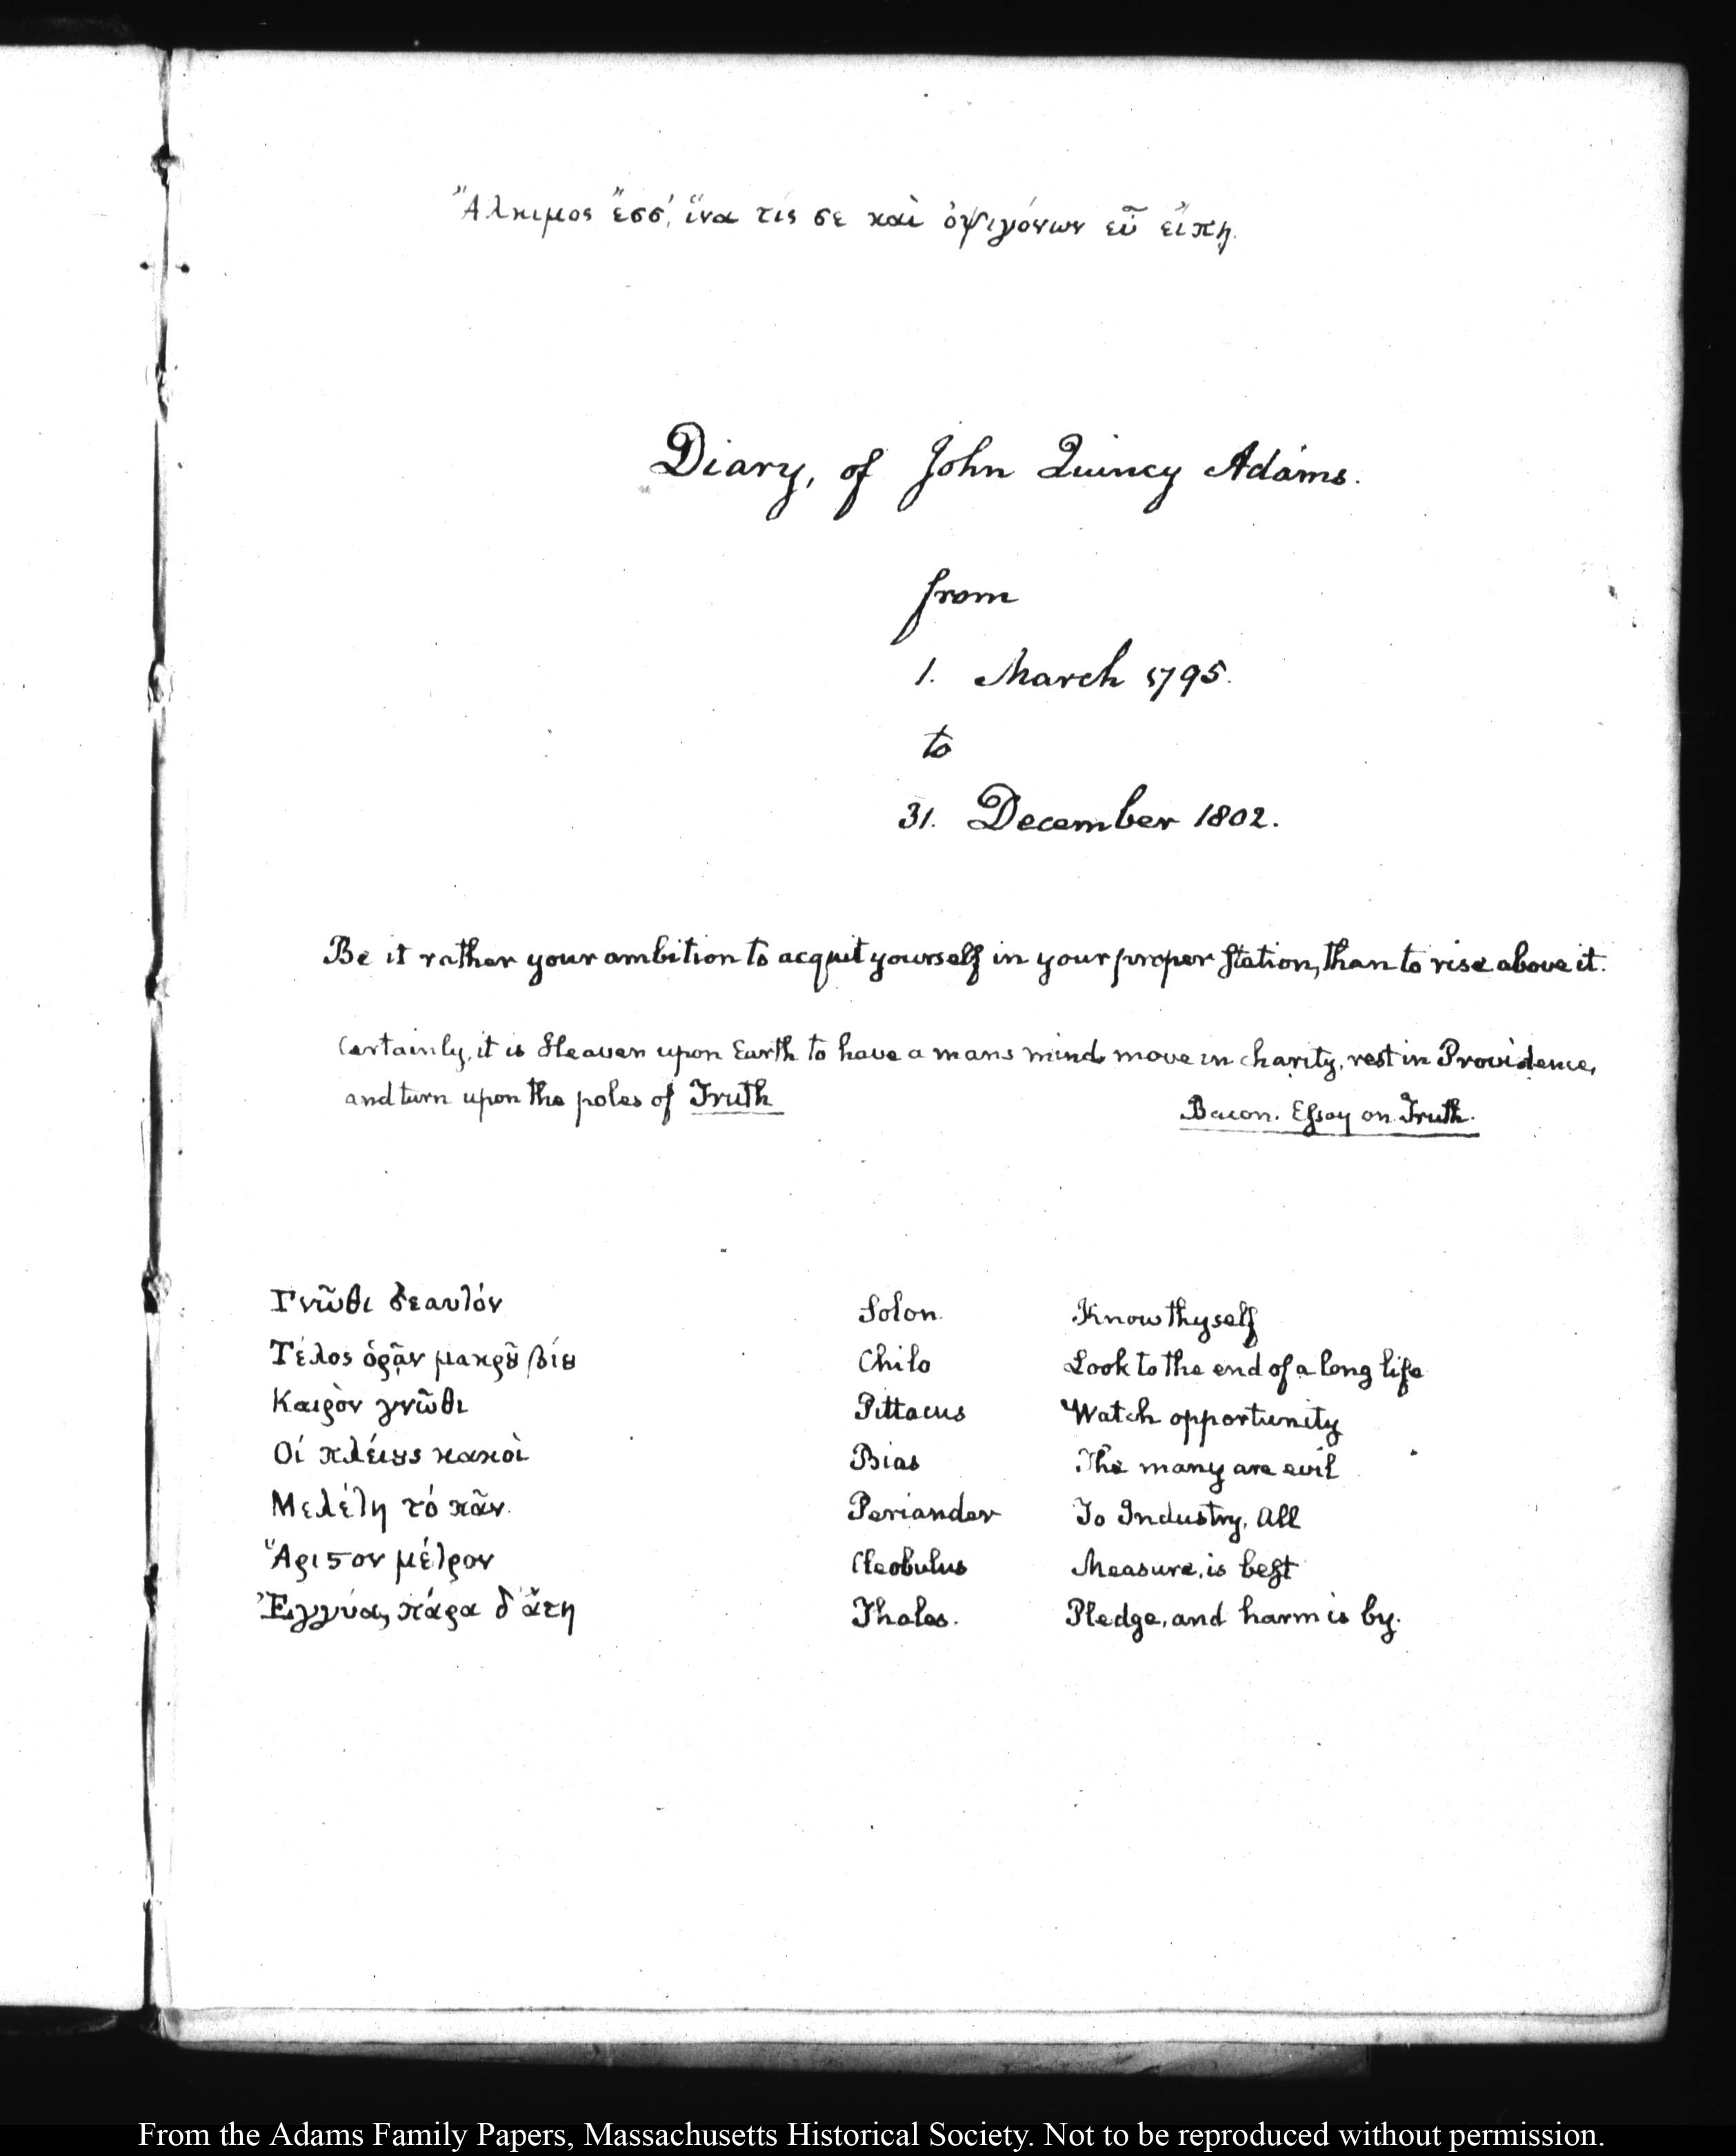 Ἄλκιμος ἔσσ', ἵνα τίς σε καὶ ὀψιγόνων εὖ εἴπῃ.
Diary, of John Quincy Adams.
from
1. March 1795.
to
31. December 1802.
Be it rather your ambition to acquit yourself in your proper station, than to rise above it.
Certainly, it is Heaven upon Earth to have a mans mind move in charity, rest in Providence,
and turn upon the poles of Truth
Bacon. Essay on Truth.
Γνῶθι σεαυτόν Solon. Know thyself
Τέλος ὁρᾷν μακρȣ͂ βίȣ Chilo Look to the end of a long life
Καιρὸν γνῶθι Pittacus Watch opportunity
Οἱ πλείȣς κακοὶ Bias The many are evil
Μελέτη τό πᾶν. Periander To Industry, All
Ἄριϛον μέτρον Cleobulus Measure, is best
Ἐγγύα, πάρα δ' ἄτη Thales. Pledge, and harm is by.
From the Adams Family Papers, Massachusetts Historical Society. Not to be reproduced without permission.